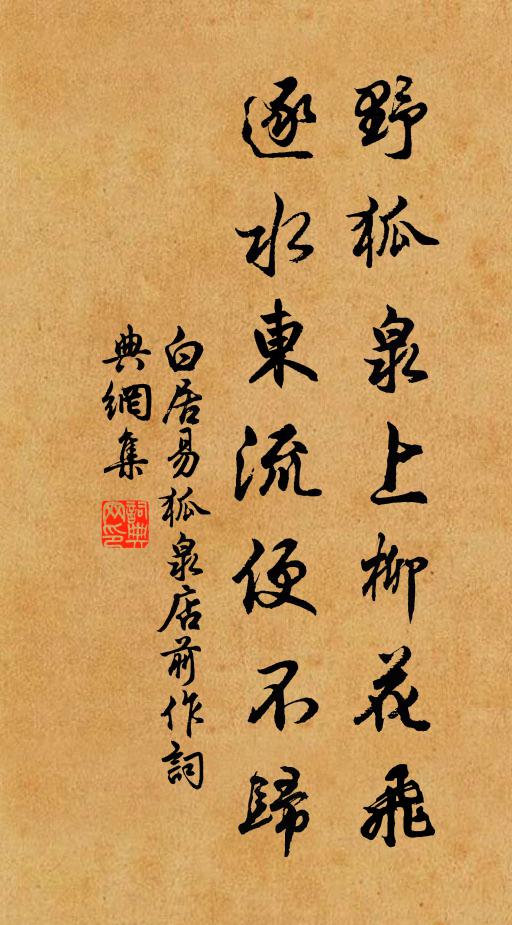 野狐泉上柳花飛
逐水東流便不歸
白居易狐泉店前作詞
典網集
詞典网印